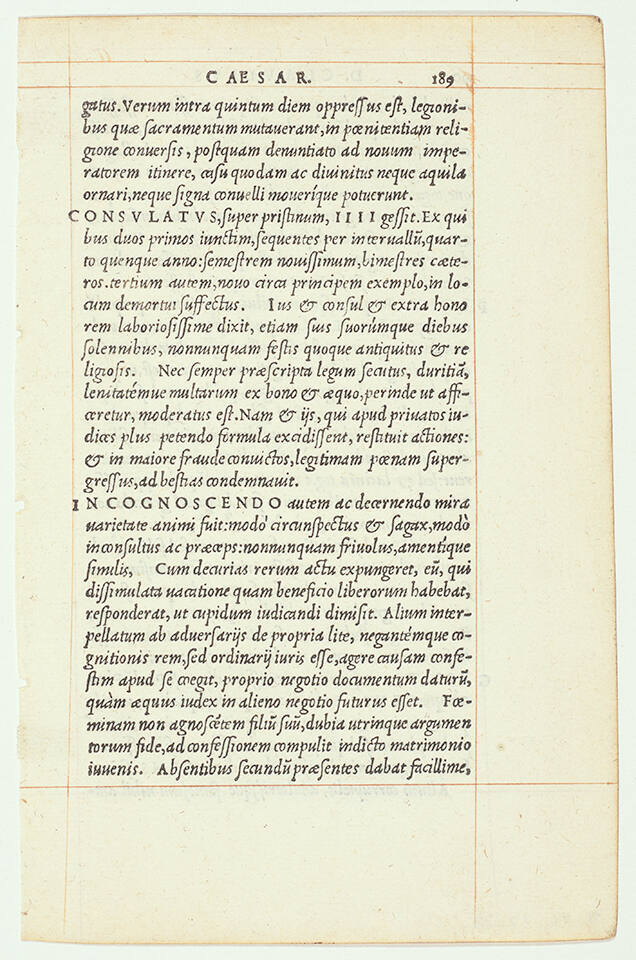 CAESAR. 189
gatus. Verum intra quintum diem oppressus est, legioni-
bus quæ sacramentum mutauerant, in pœnitentiam reli-
gione conuersis, postquam denuntiato ad nouum impe-
ratorem itinere, casu quodam ac diuinitus neque aquila
ornari, neque signa conuelli mouerique potuerunt.
CONSVLATVS, super pristinum, IIII gessit. Ex qui
bus duos primos iunctim, sequentes per interuallū, quar-
to quenque anno: semestrem nouissimum, bimestres cæte-
ros. tertium autem, nouo circa principem exemplo, in lo-
cum demortui suffectus. Ius & consul & extra hono
rem laboriosissime dixit, etiam suis suorúmque diebus
solennibus, nonnunquam festis quoque antiquitus & re
ligiosis. Nec semper præscripta legum secutus, duritiā,
lenitatémue multarum ex bono & æquo, perinde ut affi-
ceretur, moderatus est. Nam & ijs, qui apud priuatos iu-
dices plus petendo formula excidissent, restituit actiones:
& in maiore fraude conuictos, legitimam pœnam super-
gressus, ad bestias condemnauit.
IN COGNOSCENDO autem ac decernendo mira
uarietate animi fuit: modò circunspectus & sagax, modò
inconsultus ac præceps: nonnunquam friuolus, amentíque
similis, Cum decurias rerum actu expungeret, eū, qui
dissimulata uacatione quam beneficio liberorum habebat,
responderat, ut cupidum iudicandi dimisit. Alium inter-
pellatum ab aduersarijs de propria lite, negantémque co-
gnitionis rem, sed ordinarij iuris esse, agere causam confe-
stim apud se coegit, proprio negotio documentum daturū,
quàm æquus iudex in alieno negotio futurus esset. Fœ-
minam non agnoscētem filiū suū, dubia utrinque argumen
torum fide, ad confessionem compulit indicto matrimonio
iuuenis. Absentibus secundū præsentes dabat facillime,